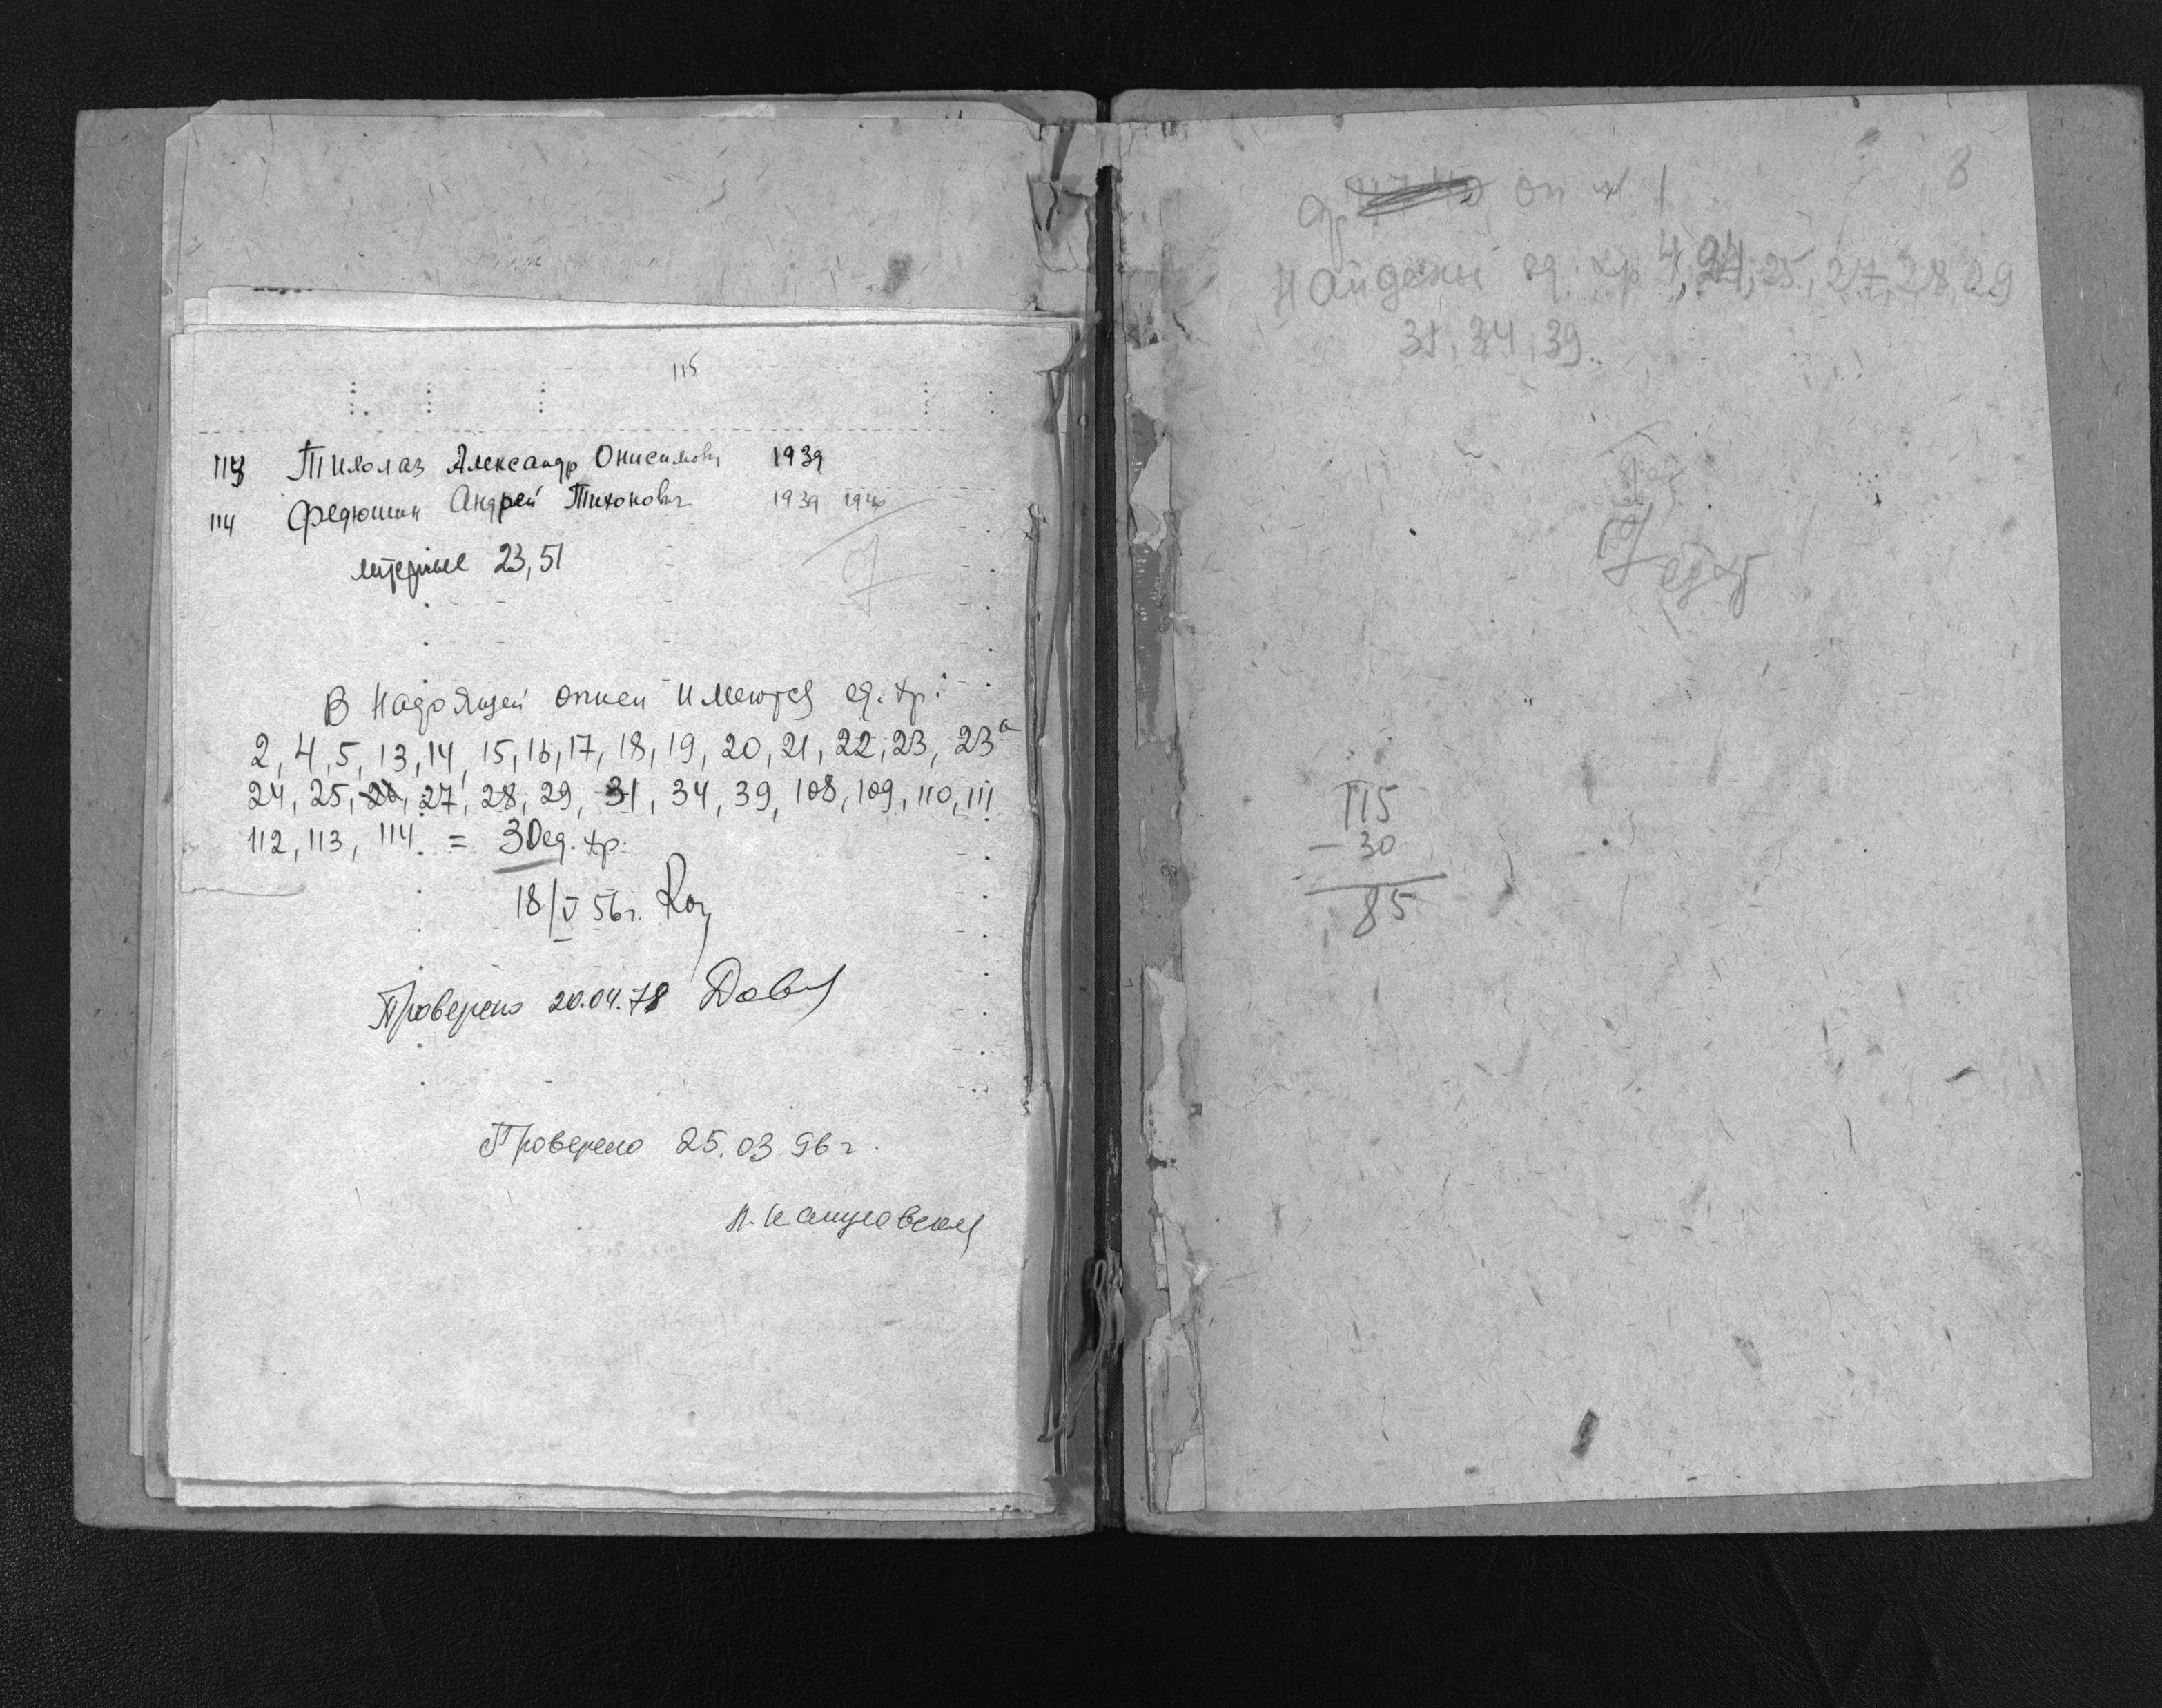 115
113 Тихолаз Александр Онисимович 1939
114 Федюшин Андрей Тихонович 1939 1940
литерные 23, 51
7
В надоящей описи имеются ед. хр:
2, 4, 5, 13, 14, 15, 16, 17, 18, 19, 20, 21, 22, 23, 23а
24, 25, 26, 27, 28, 29, 31, 34, 39, 108, 109, 110, 111
112, 113, 114. = 30 ед. хр.
18/V 56 г.
Проверено 20.04.78
Проверено 25.03.96 г.
8
оп № 1
Найдены ед. хр 4, 24, 25, 27, 28, 29
31, 34, 39.
ед хр
115
– 30
85